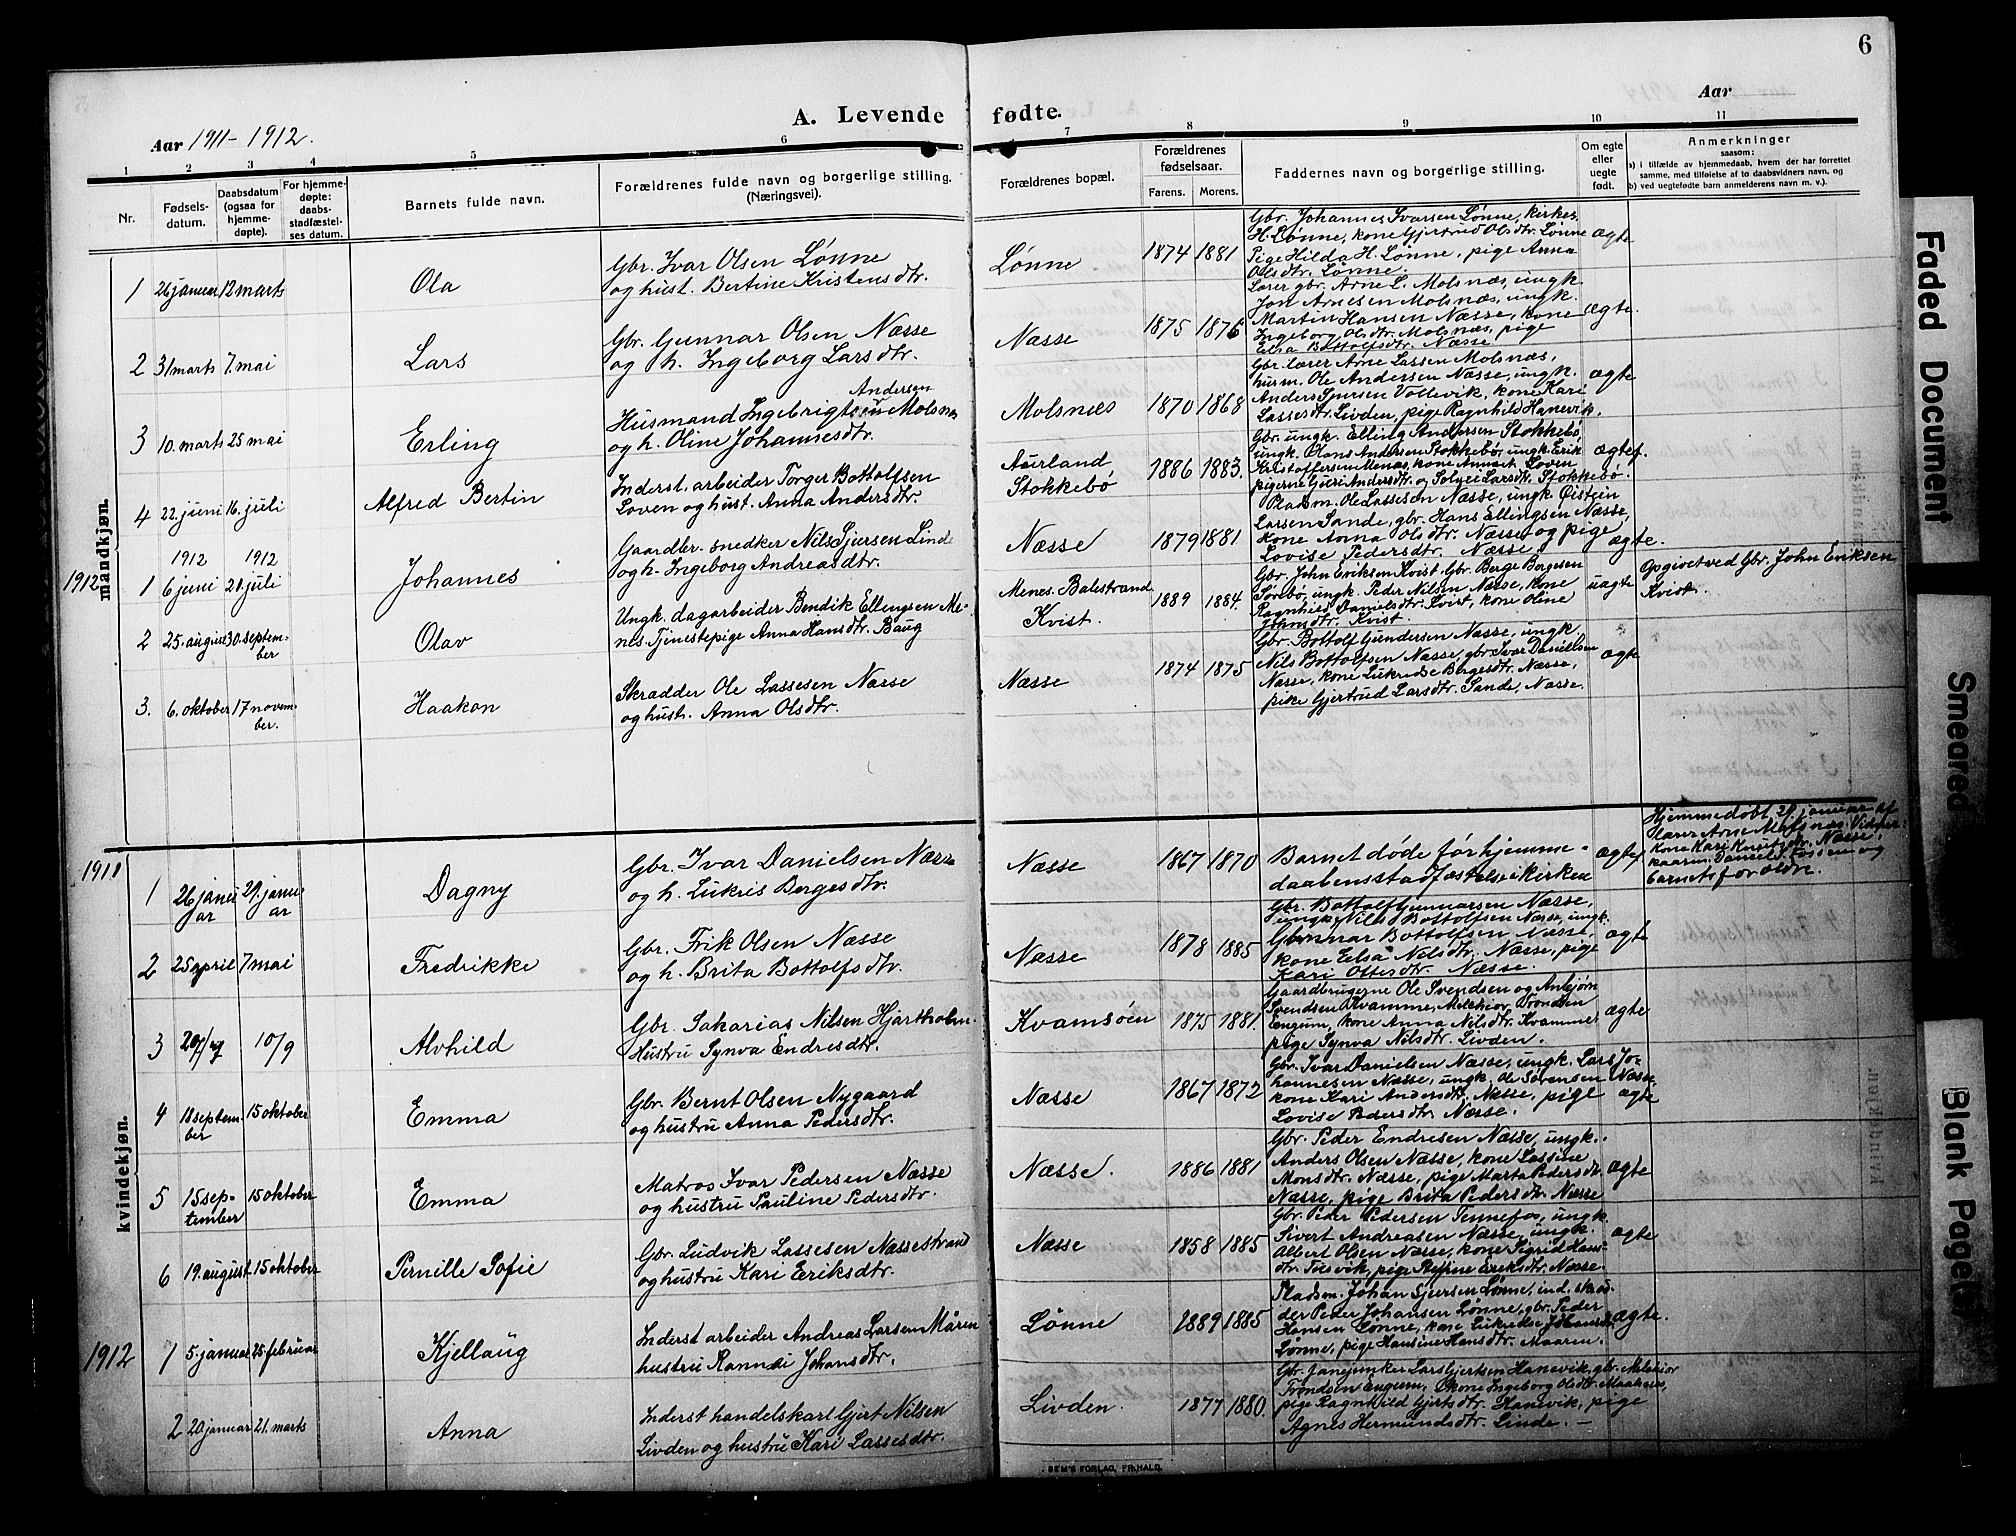 6
Aar 1911-1912.
A. Levende fødte.
Aar
1 2 3 4 5 6 7 8 9 10 11
Nr.
Fødsels-
datum.
Daabsdatum
(ogsaa for
hjemme-
døpte).
For hjemme-
døpte:
daabs-
stadfæstel-
ses datum.
Barnets fulde navn.
Forældrenes fulde navn og borgerlige stilling.
(Næringsvei).
Forældrenes bopæl.
Forældrenes
fødselsaar.
Farens. Morens.
Faddernes navn og borgerlige stilling.
Om egte
eller
uegte
født.
Anmerkninger
saasom:
a) i tilfælde av hjemmedaab, hvem der har forrettet
samme, med tilføielse af to daabsvidners navn, og
b) ved uegtefødte barn anmelderens navn m. v.).
mandkjøn.
1 26 januar 12 marts Ola
Gbr. Ivar Olsen Lønne
og hust. Bertine Kristensdtr.
Lønne 1874 1881
Gbr. Johannes Ivarsen Lønne, kirkes.
H. Lønne, kone Gjertrud Olsdtr. Lønne
Pige Hilda H. Lønne, pige Anna
Olsdtr. Lønne.
ægte
2 31 marts 7. mai Lars
Gbr. Gunnar Olsen Næsse
og h. Ingeborg Larsdtr.
Næsse 1875 1876
Lærer gbr. Arne L. Molsnæs, ungk.
Jon Arnesen Molsnæs, ungk.
Martin Hansen Næsse, kone
Ingeborg Olsdtr. Molsnæs, pige
Elsa Bottolfsdtr. Næsse
ægte.
3 10. marts 25 mai Erling
Andersen
Husmand Ingebrigtsen Molsnæs
og h. Oline Johannesdtr.
Molsnæs 1870 1868
Gbr. lærer Arne Lassen Molsnæs,
husm. Ole Andersen Næsse, ungk.
Anders Sjursen Vollevik, kone Kari
Lassesdtr. Livden, pige Ragnhild Hanevik.
ægte
4 22. juni 16. juli Alfred Bertin
Inderst. arbeider Torger Bottolfsen
Loven og hust. Anna Andersdtr.
Aurland
Stokkebø
1886 1883.
Gbr. ungk. Elling Andersen Stokkebø,
ungk. Olans Andersen Stokkebø, ungk. Erik
Kristoffersen Menæs, kone Loven
pigerne Andersdtr. og Larsdtr. Stokkebø.
ægtef.
1912
1912 1912
1 6 juni 21. juli Johannes
Gaardbr. snedker Nils Sjursen Linde
og h. Ingeborg Andreasdtr.
Næsse 1879 1881
Pladsm. Ole Lassesen Næsse, ungk. Øistein
Larsen Sande, gbr. Hans Ellingsen Næsse,
kone Anna Olsdtr. Næsse og pige
Lovise Pedersdtr. Næsse.
ægte.
2 25. august 30. septem-
ber
Olav
Ungk. dagarbeider Bendik Ellingsen Me-
nes. Tjenestepige Anna Hansdtr. Baug
Menes. Balestrand
Kvist.
1889 1884.
Gbr. John Eriksen Kvist. Gbr. Børge Børgesen
Sørebø, ungk. Peder Nilsen Næsse, kone
Ragnhild Danielsdtr. Kvist, kone Oline
Johansdtr. Kvist.
uægte
Opgivet ved Gbr. John Eriksen
Kvist.
3. 6. oktober 17 novem-
ber.
Haakon
Skrædder Ole Lassesen Næsse
og hustr. Anna Olsdtr.
Næsse 1874 1875
Gbr. Bottolf Gundersen Næsse, ungk.
Nils Bottolfsen Næsse, gbr. Ivar Danielsen
Næsse, kone Lukrese Børgesdtr. Næsse,
pike Gjertrud Larsdtr. Sande, Næsse.
ægte
kvindekjøn.
1911
1 26 janu-
ar 29. janu-
ar
Dagny
Gbr. Ivar Danielsen Næsse
og h. Lukris Børgesdtr.
Næsse 1867 1870
Barnet døde før hjemme-
daabens stadfæstelse i kirken
ægtef.
Hjemmedøbt 29. januar af
lærer Arne Molsnæs. Vidner:
Kone Kari Knutsdtr. Næsse,
kaarm. Daniel J. Fossen og
barnets forældre.
2 25 april 7 mai Fredrikke
Gbr. Erik Olsen Næsse
og h. Brita Bottolfsdtr.
Næsse 1878 1885
Gbr. Bottolf Gunnarsen Næsse,
ungk. Nils Bottolfsen Næsse, ungk.
Gunnar Bottolfsen Næsse,
kone Elsa Nilsdtr. Næsse, pige
Kari Ottesdtr. Næsse.
ægte
3 29/7 10/9 Alvhild
Gbr. Sakarias Nilsen Hjartholm.
Hustru Synva Endresdtr.
Kvamsöen 1875 1881.
Gaardbrugerne Ole Svendsen og Anbjørn
Svendsen Kvamme, Melchior Trondsen
Engum, kone Anna Nilsdtr. Kvamme
pige Synva Nilsdtr. Livden.
ægte
4 18 septem-
ber 15 oktober
Emma
Gbr. Bernt Olsen Nygaard
og hustru Anna Pedersdtr.
Næsse 1867 1872
Gbr. Ivar Danielsen Næsse, ungk. Lars Jo-
hannesen Næsse, ungk. Ole Sørensen Næsse,
kone Kari Andersdtr. Næsse, pige
Lovise Pedersdtr. Næsse.
ægte
5 15 sep-
tember 15 oktober
Emma
Matros Ivar Pedersen Næsse
og hustru Pauline Pedersdtr.
Næsse. 1886 1881
Gbr. Peder Endresen Næsse, ungk.
Anders Olsen Næsse, kone Lassine
Monsdtr. Næsse, pige Marta Pedersdtr.
Næsse, pige Brita Pedersdtr. Næsse
ægte
6 19. august 15 oktober Pernille Sofie
Gbr. Ludvik Lassesen Næssestrand
og hustru Kari Eriksdtr.
Næsse 1858 1885
Gbr. Peder Pedersen Tennefos, ungk.
Sivert Andreasen Næsse, ungk.
Albert Olsen Næsse, kone Sigrid Hans-
dtr. Tusvik, pige Eriksdtr. Næsse.
ægte
1912
1 5. januar 25 februar Kjellaug
Inderst arbeider Andreas Larsen Måren
hustru Rannei Johansdtr.
Lønne 1889 1885
Pladsm. Johan Sjursen Lønne, ind. skræd-
der Peder Johansen Lønne, gbr. Peder
Hansen Lønne, kone Lukrese Johansd.
Lønne, pige Hansine Hansdtr. Maaren.
ægte.
2 20 januar 21. marts Anna
Inderst handelskarl Gjert Nilsen
Livden og hustru Kari Lassesdtr.
Livden. 1877 1880.
Gbr. Lars Gjertsen Hanevik, gbr. Melchior
Trondsen Engum, kone Ingeborg Olsdtr.
pige Ragnhild Gjertsdtr. Hanevik, pige
Agnes Hermundsdtr. Linde. —
SEM'S FORLAG, FR.HALD.
Faded Document
Smeared
Blank Page